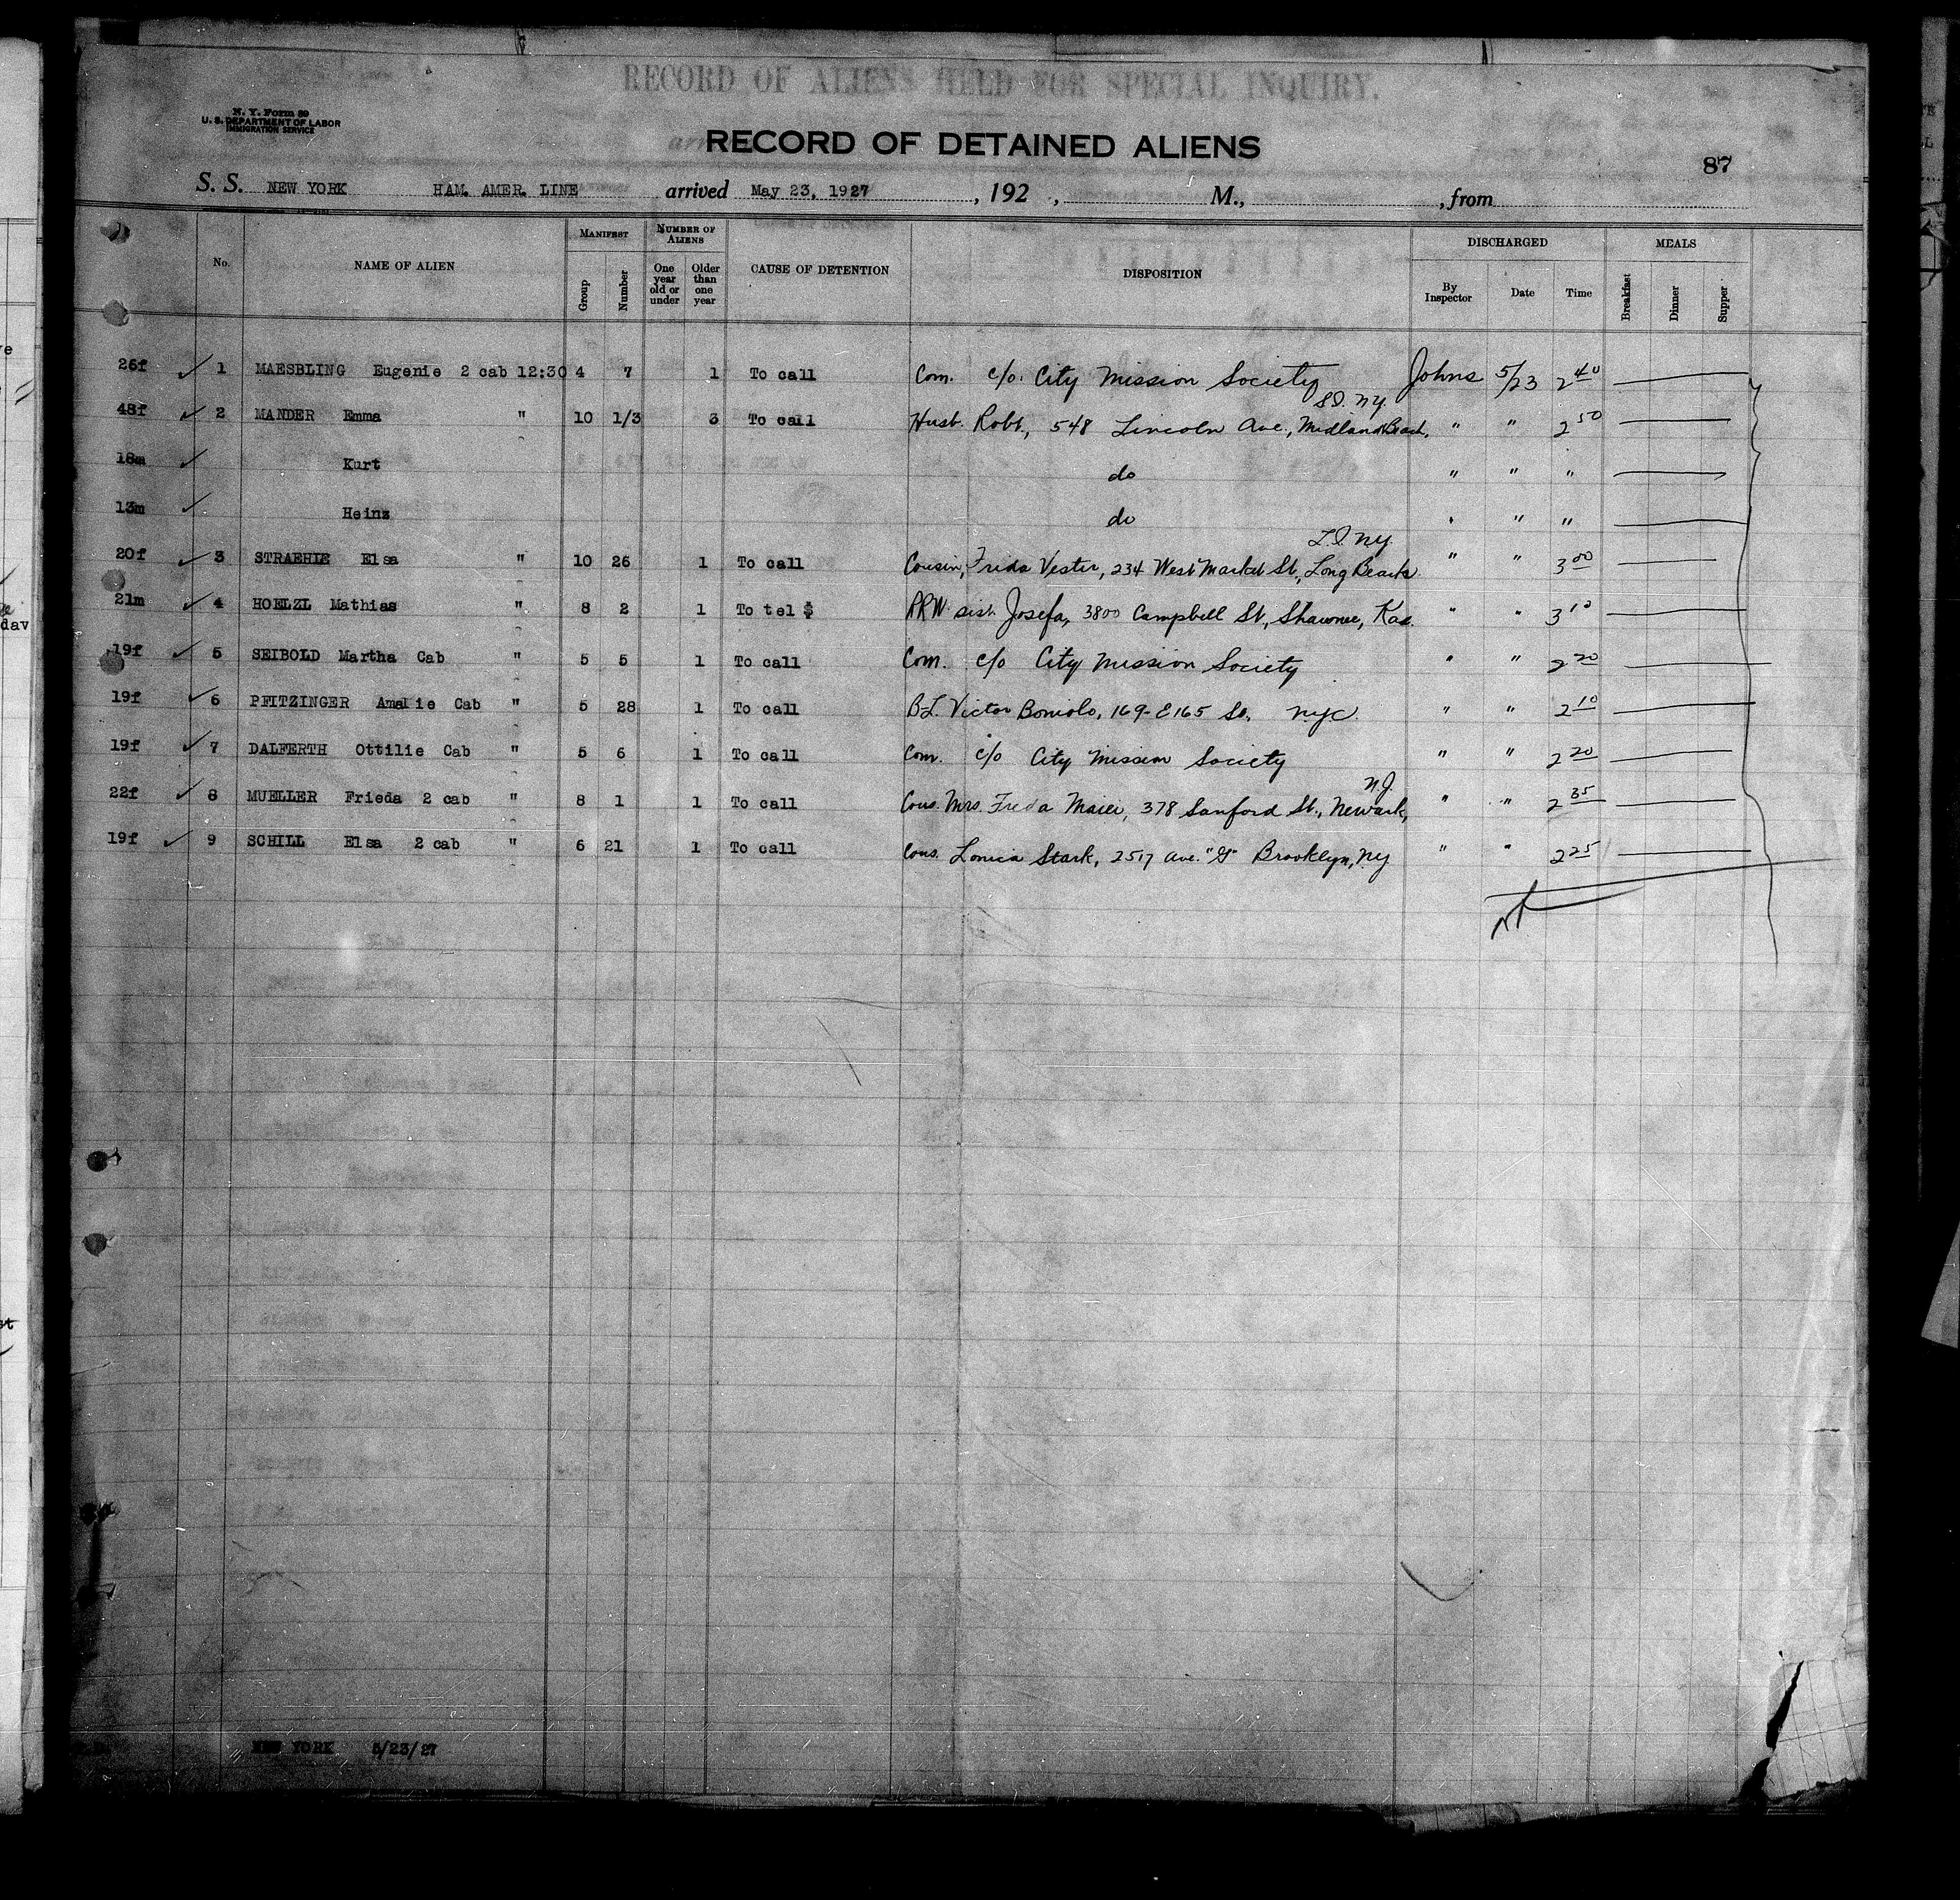 RECORD OF ALIENS HELD FOR SPECIAL INQUIRY.
N. Y. Form 89
U. S. DEPARTMENT OF LABOR
IMMIGRATION SERVICE
RECORD OF DETAINED ALIENS
87
S. S. NEW YORK HAM. AMER. LINE arrived May 23, 1927, 192 , M., , from
No. NAME OF ALIEN MANIFEST NUMBER OF ALIENS CAUSE OF DETENTION DISPOSITION DISCHARGED MEALS
Group Number One year old or under Older than one year By Inspector Date Time Breakfast Dinner Supper
26f 1 MAESBLING Eugenie 2 cab 12:30 4 7 1 To call Com. c/o. City Mission Society Johns 5/23 2 40
S.I. N.Y.
48f 2 MANDER Emma " 10 1/3 3 To call Husb. Robt, 548 Lincoln Ave., Midland Beach, " " 2 50
18m Kurt do " " "
13m Heinz do " " "
L.I. N.Y.
20f 3 STRAEHIE Elsa " 10 26 1 To call Cousin, Frida Vester, 234 West Market St., Long Beach " " 3 00
21m 4 HOELZL Mathias " 8 2 1 To tel $ RRW sist. Josefa, 3800 Campbell St., Shawnee, Kas. " " 3 10
19f 5 SEIBOLD Martha Cab " 5 5 1 To call Com. c/o City Mission Society " " 2 20
19f 6 PFITZINGER Amalie Cab " 5 28 1 To call BL. Victor Boniolo, 169-E165 St. NYC " " 2 10
19f 7 DALFERTH Ottilie Cab " 5 6 1 To call Com. c/o City Mission Society " " 2 20
N.J.
22f 8 MUELLER Frieda 2 cab " 8 1 1 To call Cous. Mrs. Freda Maier, 378 Sanford St., Newark, " " 2 35
19f 9 SCHILL Elsa 2 cab " 6 21 1 To call Cous. Stark, 2517 Ave. "G" Brooklyn, NY " " 2 25
NEW YORK 5/23/27